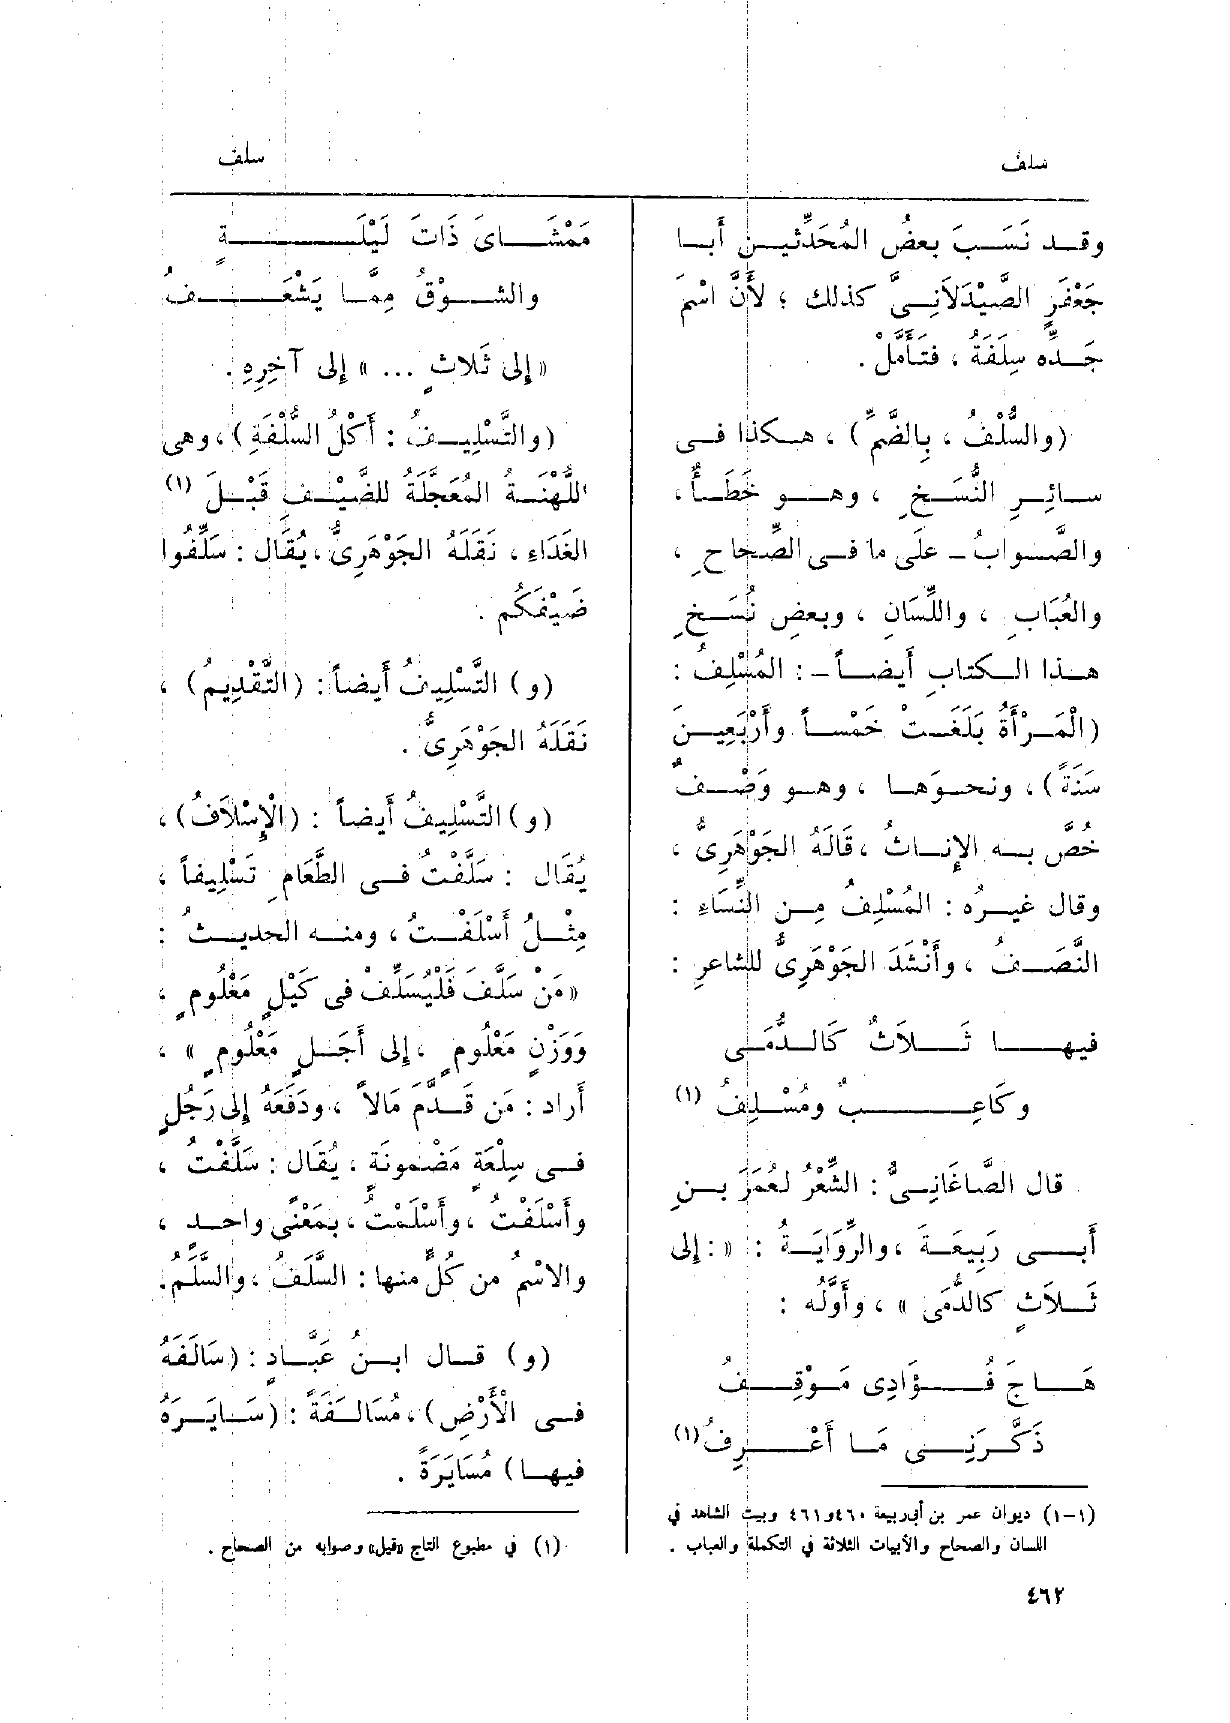 سلف
سلف
وقد نَسَبَ بعضُ المُحَدِّثين أَبا
جَعْفَرٍ الصَّيْدَلاَنِىَّ كذلك ؛ لأَنَّ اسْمَ
جَدِّه سِلَفَةُ ، فتَأَمَّلْ .
(والسُّلْفُ ، بِالضَّمِّ) ، هكذا فى
سائِرِ النُّسَخِ ، وهو خَطَأٌ ،
والصَّوابُ – علَى ما فى الصِّحاحِ ،
والعُبَابِ ، واللِّسَانِ ، وبعضِ نُسَخِ
هذا الكتابِ أَيضاً – : المُسْلِفُ :
(الْمَرْأَةُ بَلَغَتْ خَمْساً وأَرْبَعِينَ
سَنَةً) ، ونحوَها ، وهو وَصْفٌ
خُصَّ به الإِناثُ ، قَالَهُ الجَوْهَرِىُّ ،
وقال غيرُه : المُسْلِفُ مِن النِّسَاءِ :
النَّصَفُ ، وأَنْشَدَ الجَوْهَرِىُّ للشاعرِ :
فيها ثَلاَثٌ كَالدُّمَى
وكَاعِبٌ ومُسْلِفُ (١)
قال الصَّاغَانِىُّ : الشِّعْرُ لعُمَرَ بنِ
أَبى رَبِيعَةَ ، والرِّوَايَةُ : « : إِلى
ثَلاَثٍ كالدُّمَى » ، وأَوَّلُه :
هَاجَ فُؤَادِى مَوْقِفُ
ذَكَّرَنِى مَا أَعْرِفُ (١)
(١-١) ديوان عمر بن أبى ربيعة ٤٦٠ و٤٦١ وبيت الشاهد في
اللسان والصحاح والأبيات الثلاثة في التكملة والعباب .
مَمْشَاىَ ذَاتَ لَيْلَةٍ
والشَّوْقُ مِمَّا يَشْعَفُ
« إِلى ثَلاثٍ ... » إِلى آخِرِهِ .
(والتَّسْلِيفُ : أَكْلُ السُّلْفَةِ) ، وهى
اللُّهْنَةُ المُعَجَّلَةُ للضَّيْفِ قَبْلَ (١)
الغَدَاءِ ، نَقَلَهُ الجَوْهَرِىُّ ، يُقَال : سَلِّفُوا
ضَيْفَكُم .
(و) التَّسْلِيفُ أَيضاً : (التَّقْدِيمُ) ،
نَقَلَهُ الجَوْهَرِىُّ .
(و) التَّسْلِيفُ أَيضاً : (الْإِسْلاَفُ) ،
يُقَال : سَلَّفْتُ فى الطَّعَامِ تَسْلِيفاً ،
مِثْلُ أَسْلَفْتُ ، ومنه الحديثُ :
« مَنْ سَلَّفَ فَلْيُسَلِّفْ فى كَيْلٍ مَعْلُومٍ ،
وَوَزْنٍ مَعْلُومٍ ، إِلى أَجَلٍ مَعْلُومٍ » ،
أَراد : مَن قَدَّمَ مَالاً ، ودَفَعَهُ إِلى رَجُلٍ
فى سِلْعَةٍ مَضْمُونَةٍ ، يُقَال : سَلَّفْتُ ،
وأَسْلَفْتُ ، وأَسْلَمْتُ ، بمَعْنًى واحد ،
والاسْمُ من كُلٍّ منها : السَّلَفُ ، والسَّلَمُ .
(و) قال ابنُ عَبَّادٍ : (سَالَفَهُ
فى الْأَرْضِ) ، مُسَالَفَةً : (سَايَرَهُ
فيها) مُسَايَرَةً .
(١) في مطبوع التاج «قيل» وصوابه من الصحاح .
٤٦٢